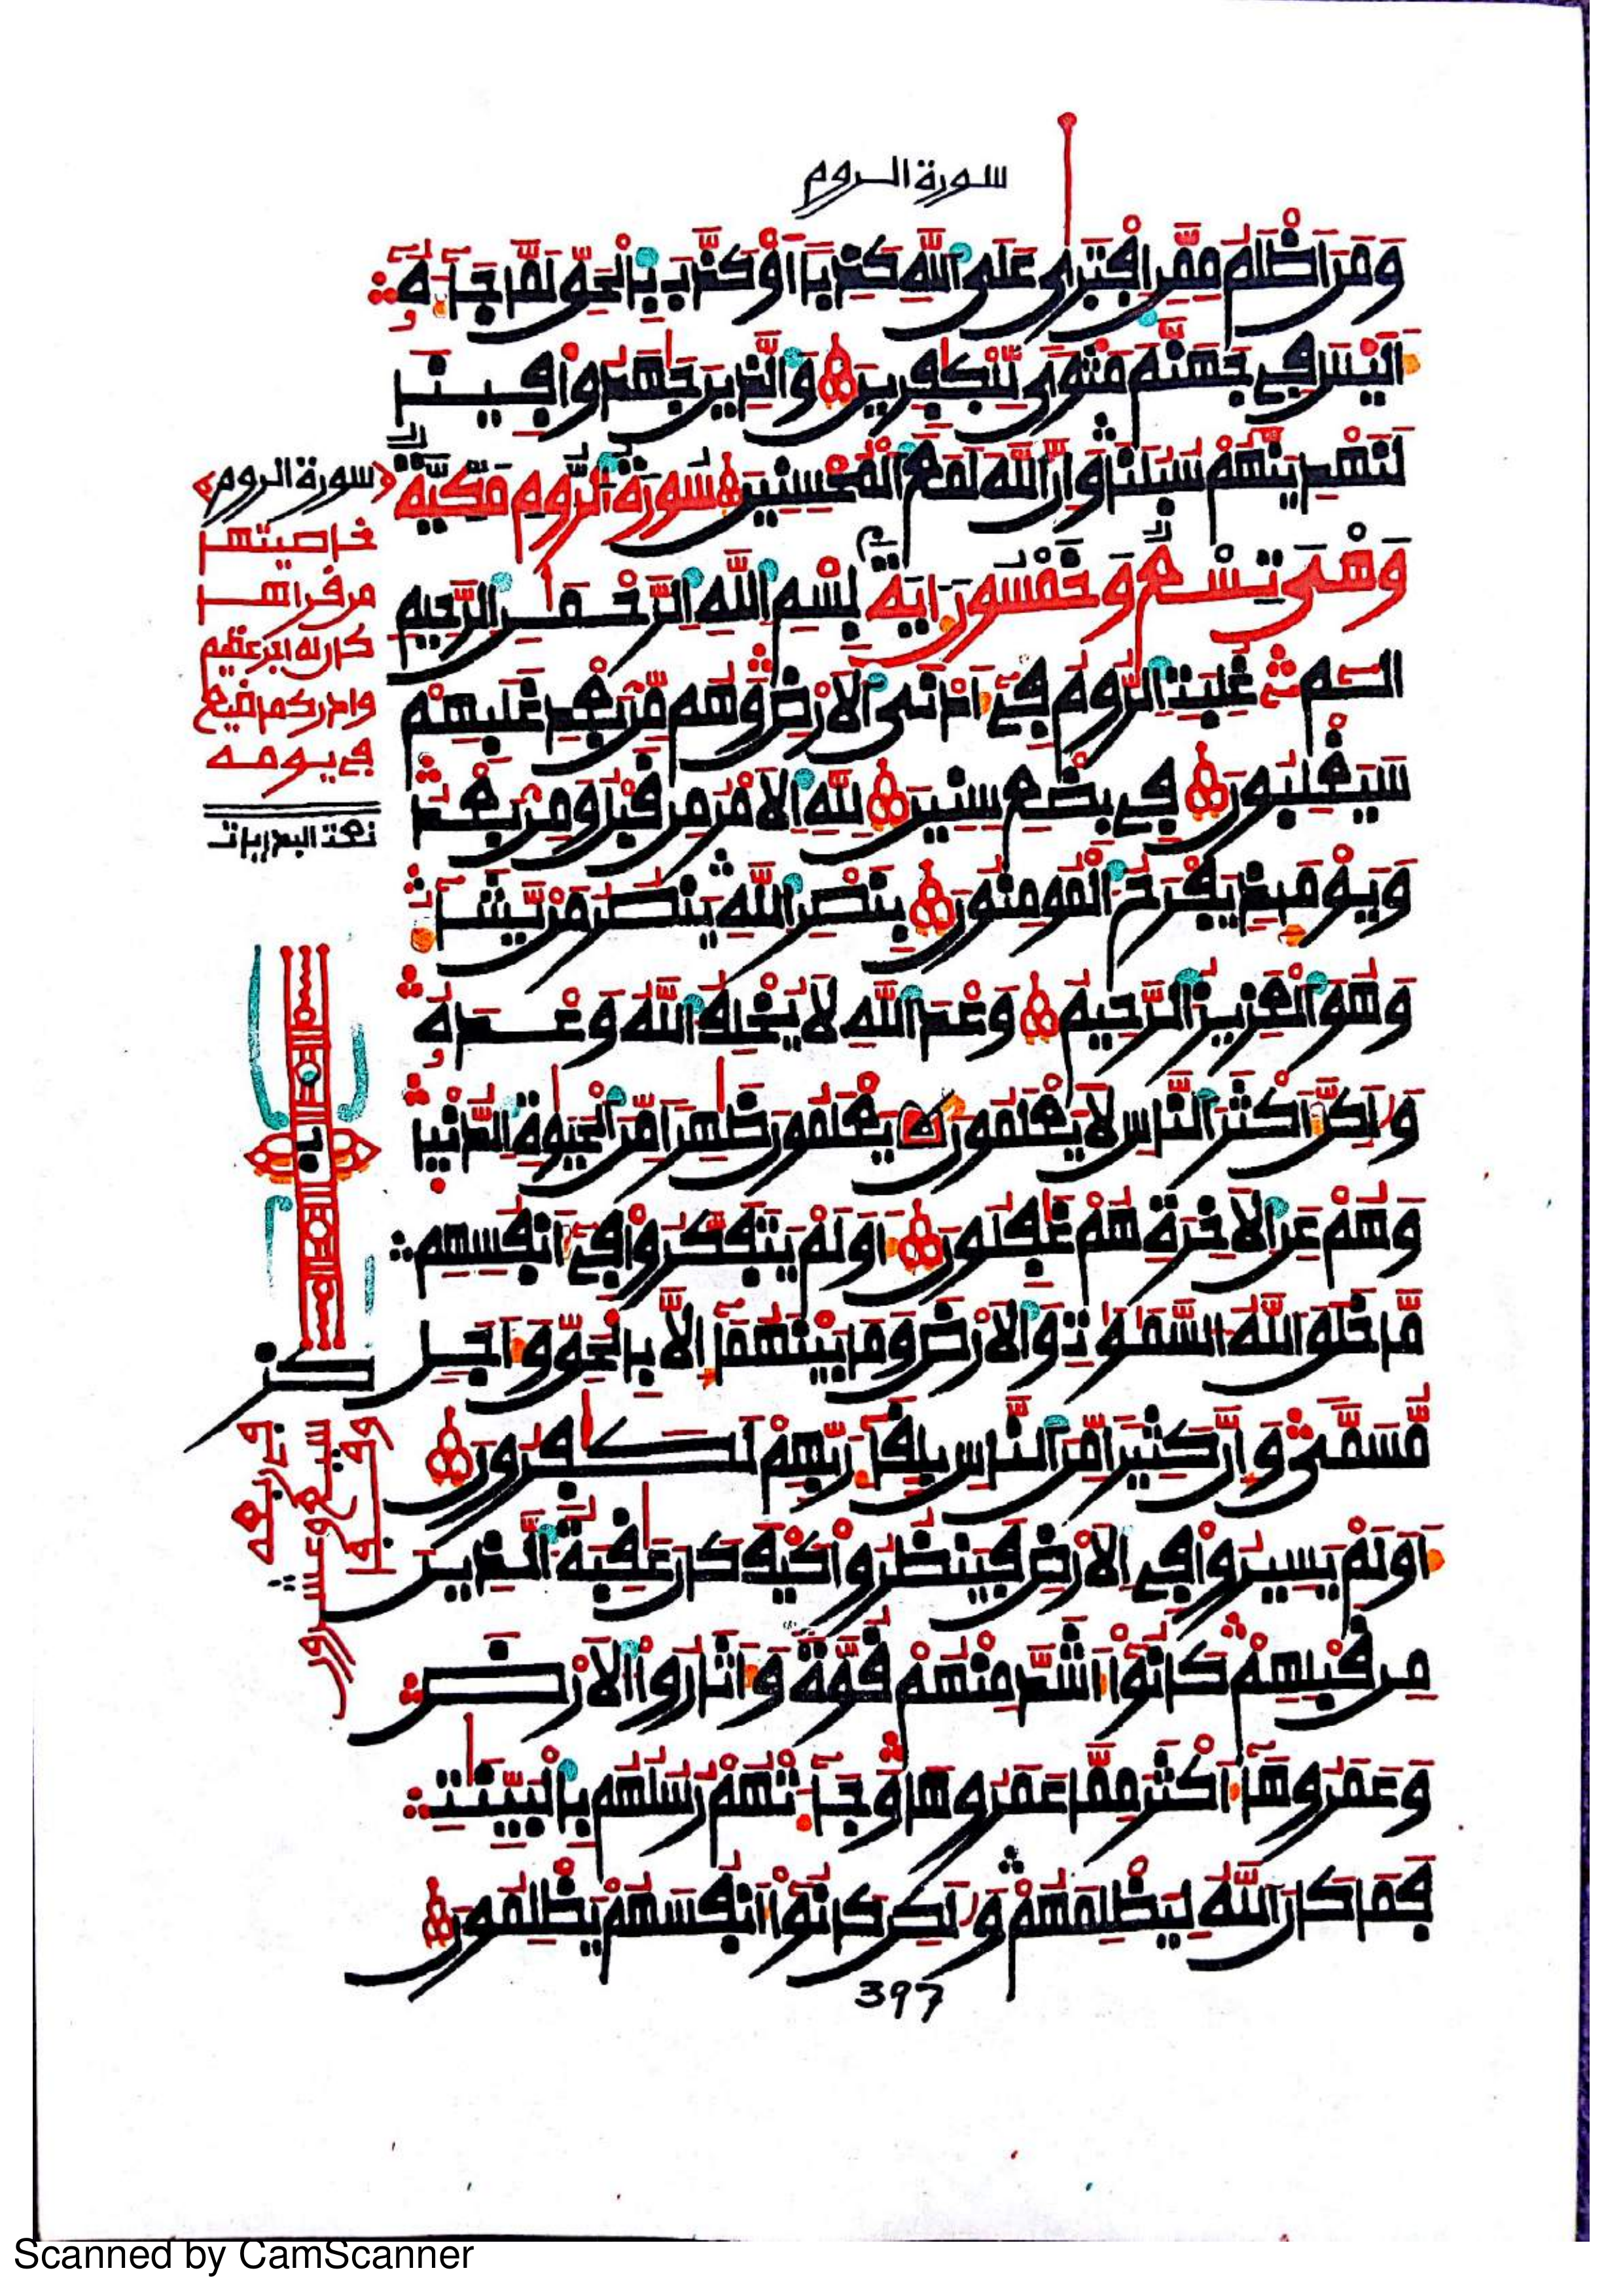 سورة الروم
وَمَنَ اَظْلَمُ مِمَّنِ اِفْتَرٰى عَلَى اَللَّهِ كَذِباً اَوْ كَذَّبَ بِالْحَقِّ لَمَّا جَآءَهُۥٓ
أَلَيْسَ فِي جَهَنَّمَ مَثْوىً لِّلْكٰفِرِينَ وَالذِينَ جَٰهَدُواْ فِينَا
لَنَهْدِيَنَّهُمْ سُبُلَنَا وَإِنَّ اَللَّهَ لَمَعَ اَلْمُحْسِنِينَ سُورَةُ اَلرُّومِ مَكِّيَّةٌ
وَهْىَ تِسْعٌ وَخَمْسُونَ ءَايَةً بِسْمِ اِللَّهِ اِلرَّحْمَٰنِ اِلرَّحِيمِ
أَلَٓمِّٓ غُلِبَتِ اِلرُّومُ فِےٓ أَدْنَى اَلَارْضِ وَهُم مِّنۢ بَعْدِ غَلَبِهِمْ
سَيَغْلِبُونَ فِي بِضْعِ سِنِينَ لِلهِ اِلَامْرُ مِن قَبْلُ وَمِنۢ بَعْدُ
وَيَوْمَئِذٍ يَفْرَحُ اَلْمُومِنُونَ بِنَصْرِ اِللَّهِ يَنصُرُ مَنْ يَّشَآءُ
وَهُوَ اَلْعَزِيزُ اَلرَّحِيمُ وَعْدَ اَللَّهِ لَا يُخْلِفُ اَللَّهُ وَعْدَهُۥ
وَلَٰكِنَّ أَكْثَرَ اَلنَّاسِ لَا يَعْلَمُونَ يَعْلَمُونَ ظَٰهِراً مِّنَ اَلْحَيَوٰةِ اِلدُّنْيَا
وَهُمْ عَنِ اِلَاخِرَةِ هُمْ غَٰفِلُونَ أَوَلَمْ يَتَفَكَّرُواْ فِےٓ أَنفُسِهِم
مَّا خَلَقَ اَللَّهُ اُلسَّمَٰوَٰتِ وَالَارْضَ وَمَا بَيْنَهُمَآ إِلَّا بِالْحَقِّ وَأَجَلٖ
مُّسَمّىً وَإِنَّ كَثِيراً مِّنَ اَلنَّاسِ بِلِقَآءِ رَبِّهِمْ لَكَٰفِرُونَ
أَوَلَمْ يَسِيرُواْ فِي اِلَارْضِ فَيَنظُرُواْ كَيْفَ كَانَ عَٰقِبَةُ اُلذِينَ
مِن قَبْلِهِمْ كَانُوٓاْ أَشَدَّ مِنْهُمْ قُوَّةً وَأَثَارُواْ اُلَارْضَ
وَعَمَرُوهَآ أَكْثَرَ مِمَّا عَمَرُوهَا وَجَآءَتْهُمْ رُسُلُهُم بِالْبَيِّنَٰتِ
فَمَا كَانَ اَللَّهُ لِيَظْلِمَهُمْ وَلَٰكِن كَانُوٓاْ أَنفُسَهُمْ يَظْلِمُونَ
397
﴿سورة الروم﴾
خاصيتها
من قراها
كان له اجر عظيم
وادرك ما ضيع
في يومه
Scanned by CamScanner